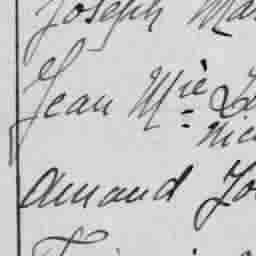 Joseph Ma
Jean Mie
Nic
Amand Jo